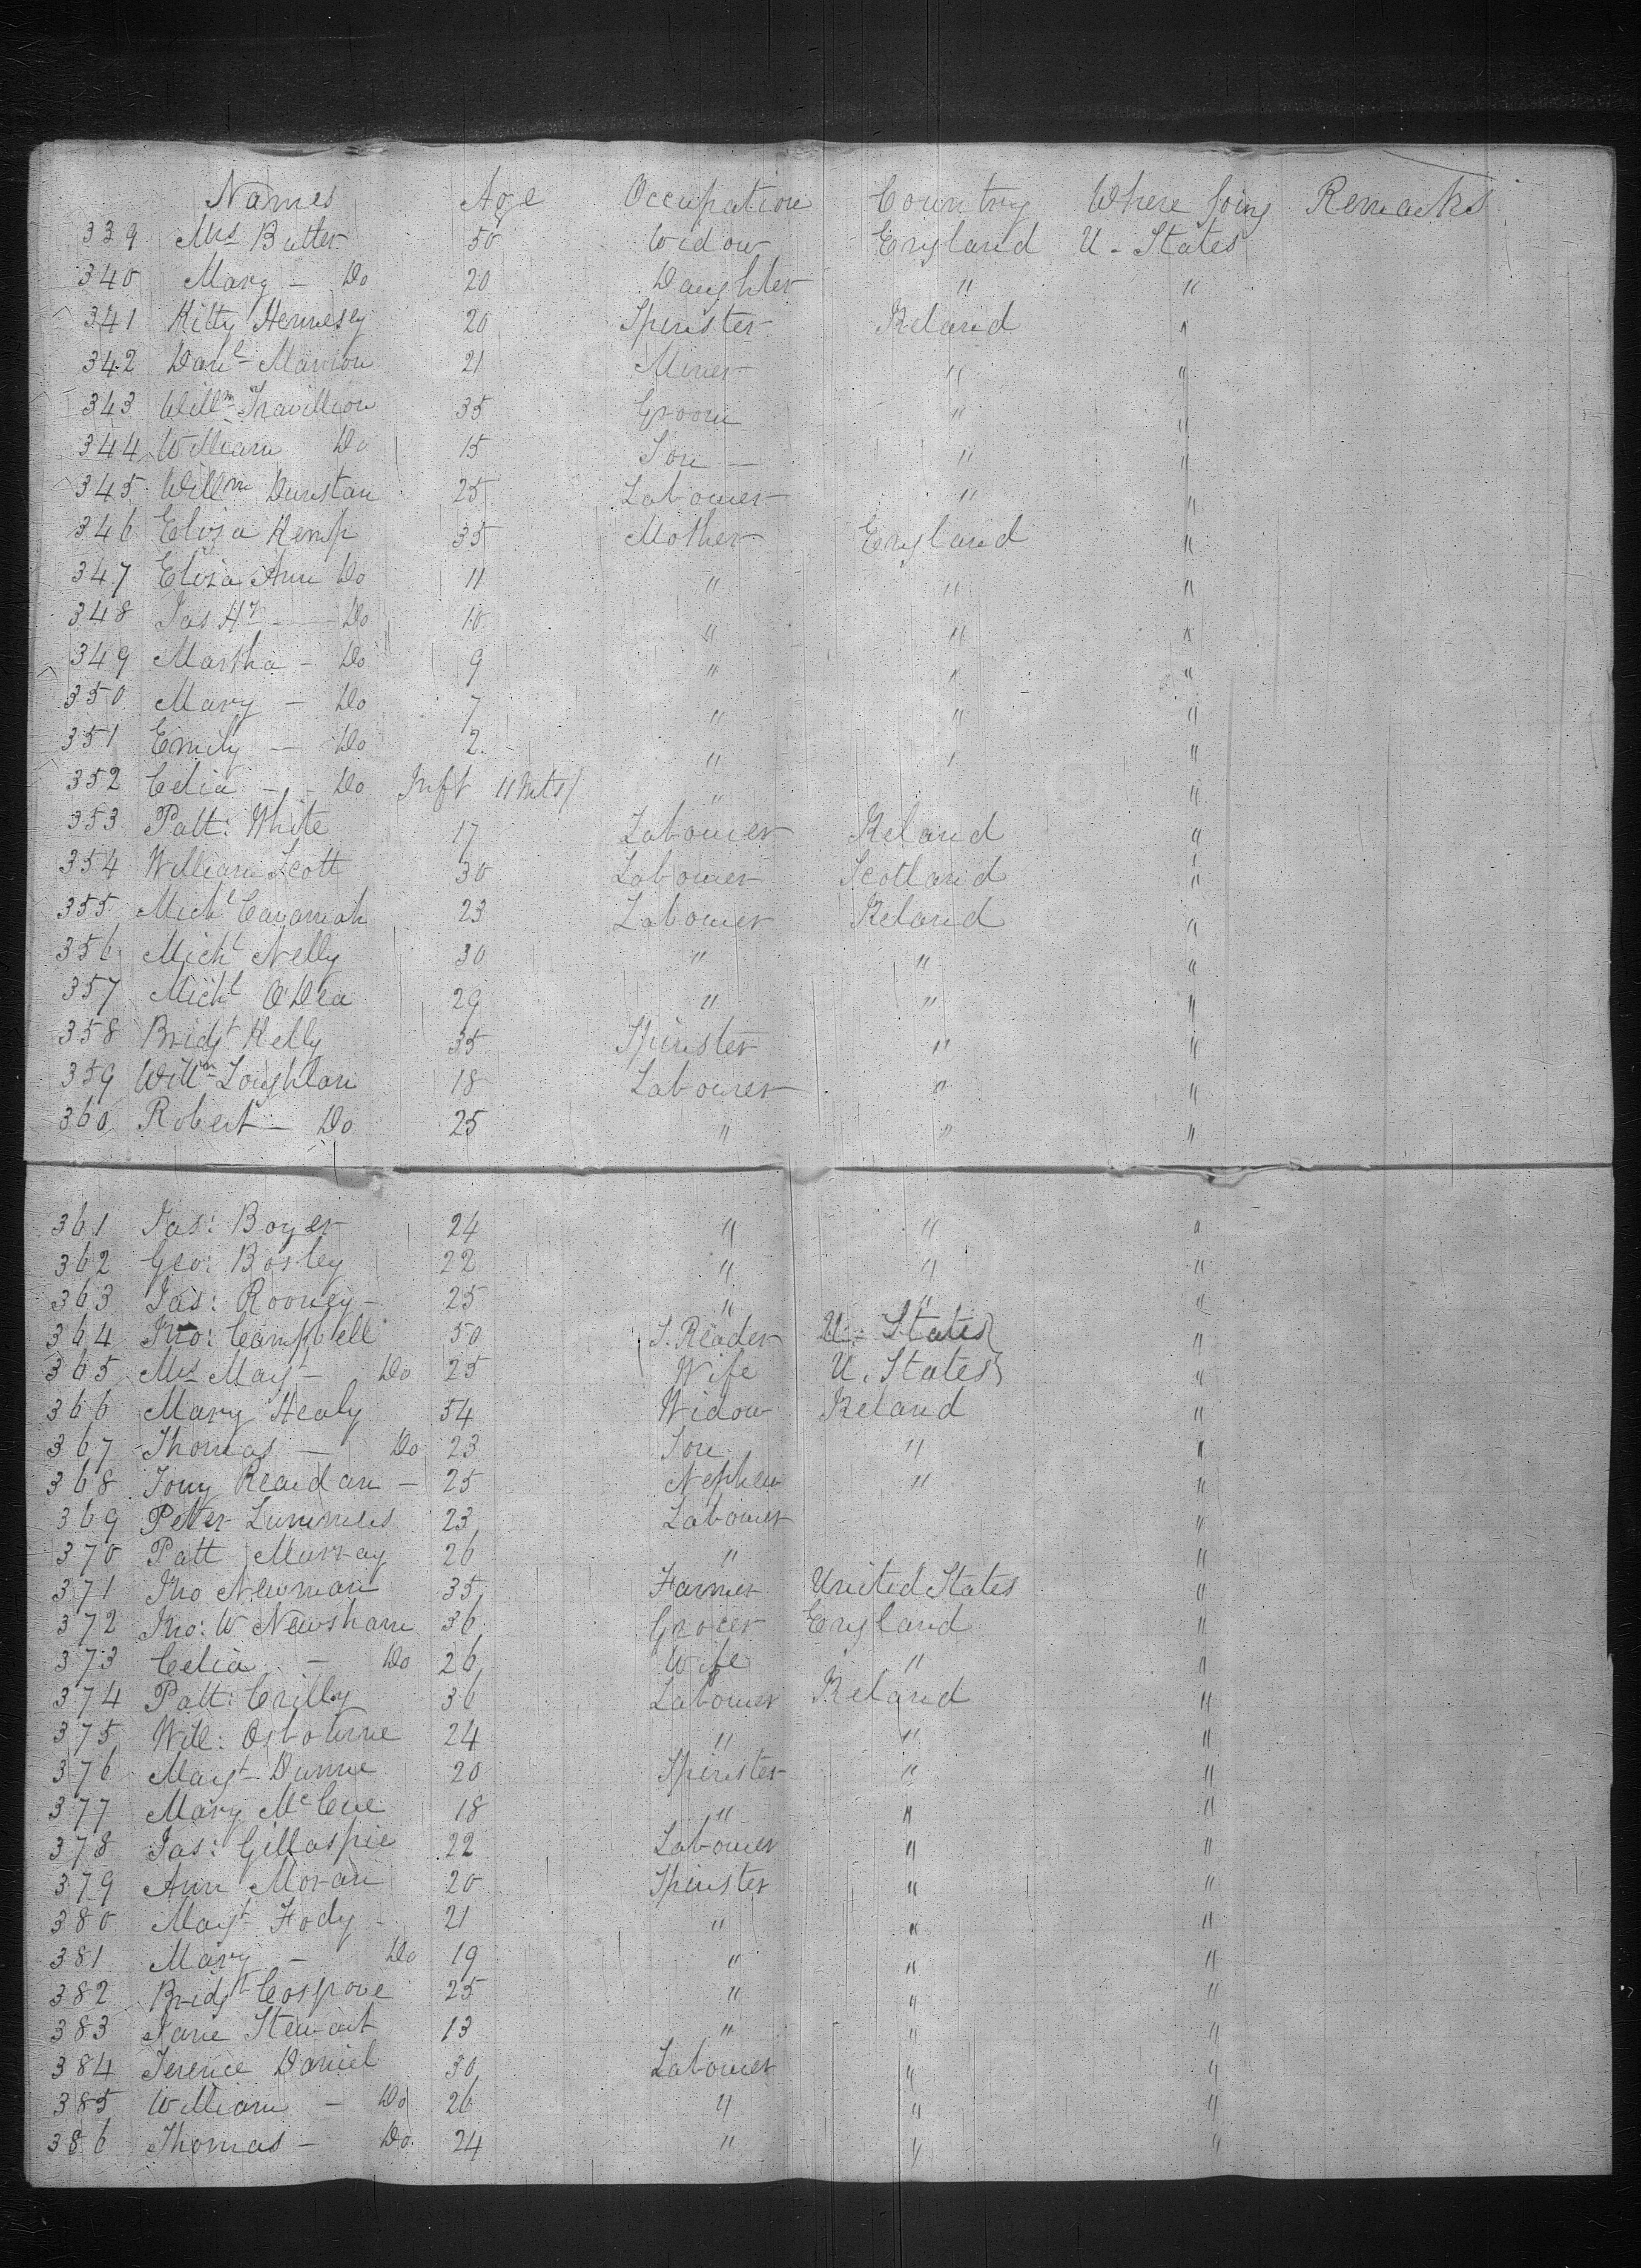 Names Age Occupation Country Where Going Remarks
339 Mrs Butter 50 Widow England U-States
340 Mary - Do 20 Daughter " "
341 Kitty Hennesey 20 Spinster Ireland "
342 Danl Manion 21 Miner " "
343 Willm Travillion 35 Groom " "
344 William Do 15 Son - " "
345 Willm Dunstan 25 Labourer " "
346 Eliza Kemp 35 Mother England "
347 Eliza Ann Do 11 " " "
348 Jas Hy - Do 10 " " "
349 Martha - Do 9 " " "
350 Mary - Do 7 " " "
351 Emily - Do 2 " " "
352 Celia - Do Inft 11 Mts " "
353 Patt: White 17 Labourer Ireland "
354 William Scott 30 Labourer Scotland "
355 Michl Cavanah 23 Labourer Ireland "
356 Michl Nelly 30 " " "
357 Michl O'Dea 29 " " "
358 Bridgt Kelly 35 Spinster " "
359 Willm Loughlan 18 Labourer " "
360 Robert - Do 25 " " "
361 Jas: Boyer 24 " " "
362 Geo: Bosley 22 " " "
363 Jas: Rooney - 25 " " "
364 Jno: Campbell 50 S. Reader U. States "
365 Mrs May - Do 25 Wife U. States "
366 Mary Healy 54 Widow Ireland "
367 Thomas - Do 23 Son " "
368 Tony Reardan - 25 Nephew " "
369 Peter Lummes 23 Labourer "
370 Patt Murray 26 " "
371 Jno Newman 35 Farmer United States "
372 Jno: W Newsham 36 Grocer England "
373 Celia - Do 26 Wife " "
374 Patt: Crilly 36 Labourer Ireland "
375 Will: Osbourne 24 " " "
376 Margt Dunne 20 Spinster " "
377 Mary McCue 18 " " "
378 Jas: Gillaspie 22 Labourer " "
379 Ann Moran 20 Spinster " "
380 Margt Fody - 21 " " "
381 Mary - Do 19 " " "
382 Bridgt Cosgrove 25 " " "
383 Jane Stewart 13 " " "
384 Terence Daniel 30 Labourer " "
385 William - Do 26 " " "
386 Thomas - Do 24 " " "